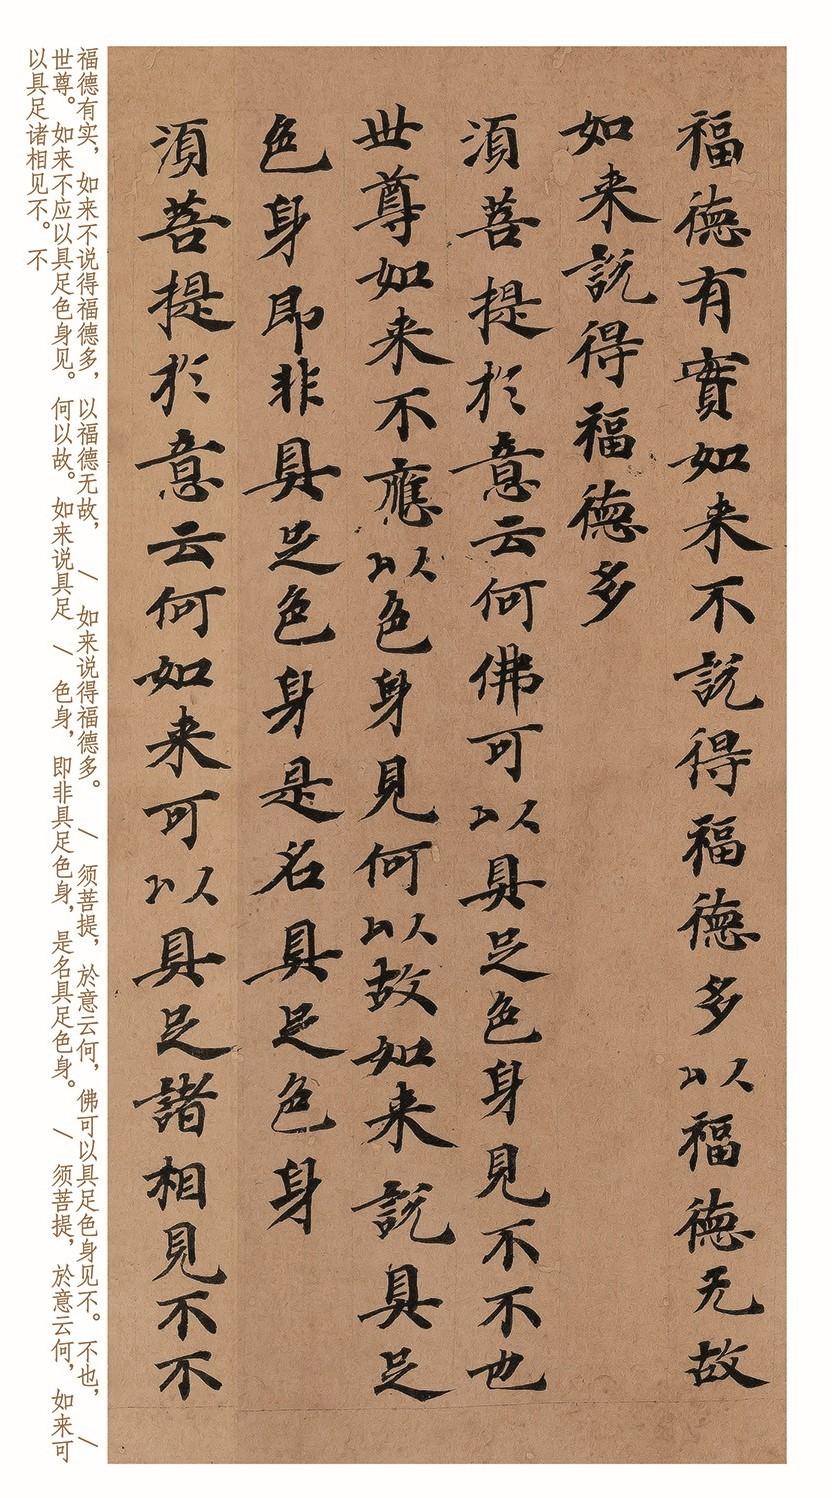 福德有實如来不説得福德多以福德无故
如来説得福德多
須菩提於意云何佛可以具足色身見不不也
世尊如来不應以色身見何以故如来説具足
色身即非具足色身是名具足色身
須菩提於意云何如来可以具足諸相見不不
福德有实，如来不说得福德多，以福德无故， / 如来说得福德多。 / 须菩提，於意云何，佛可以具足色身见不。不也， /
世尊。如来不应以具足色身见。何以故。如来说具足 / 色身，即非具足色身，是名具足色身。 / 须菩提，於意云何，如来可
以具足诸相见不。不